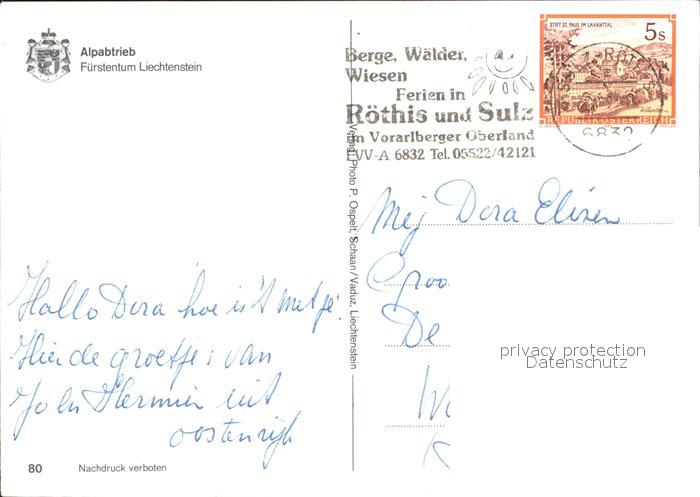 Alpabtrieb
Fürstentum Liechtenstein
Berge, Wälder,
Wiesen
Ferien in
Röthis und Sulz
im Vorarlberger Oberland
EVV-A 6832 Tel. 05522/42121
STIFT ST. PAUL IM LAVANTTAL
5s
REPUBLIK ÖSTERREICH
6832
Verlag: Photo P. Ospelt, Schaan/Vaduz, Liechtenstein
Mej Dora Elisen
De
privacy protection
Datenschutz
Hallo Dora hoe is't met je!
Hier de groetjes van
John Hermien uit
oostenrijk
80
Nachdruck verboten